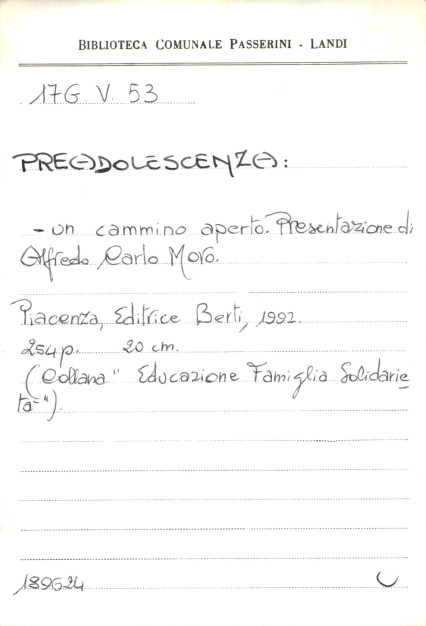 BIBLIOTECA COMUNALE PASSERINI - LANDI
17G. V. 53
PREADOLESCENZA:
- un cammino aperto. Presentazione di
Alfredo Carlo Moro.
Piacenza, Editrice Berti, 1992.
254p. 20 cm.
(Collana " Educazione Famiglia Solidarie
tà-").
189624